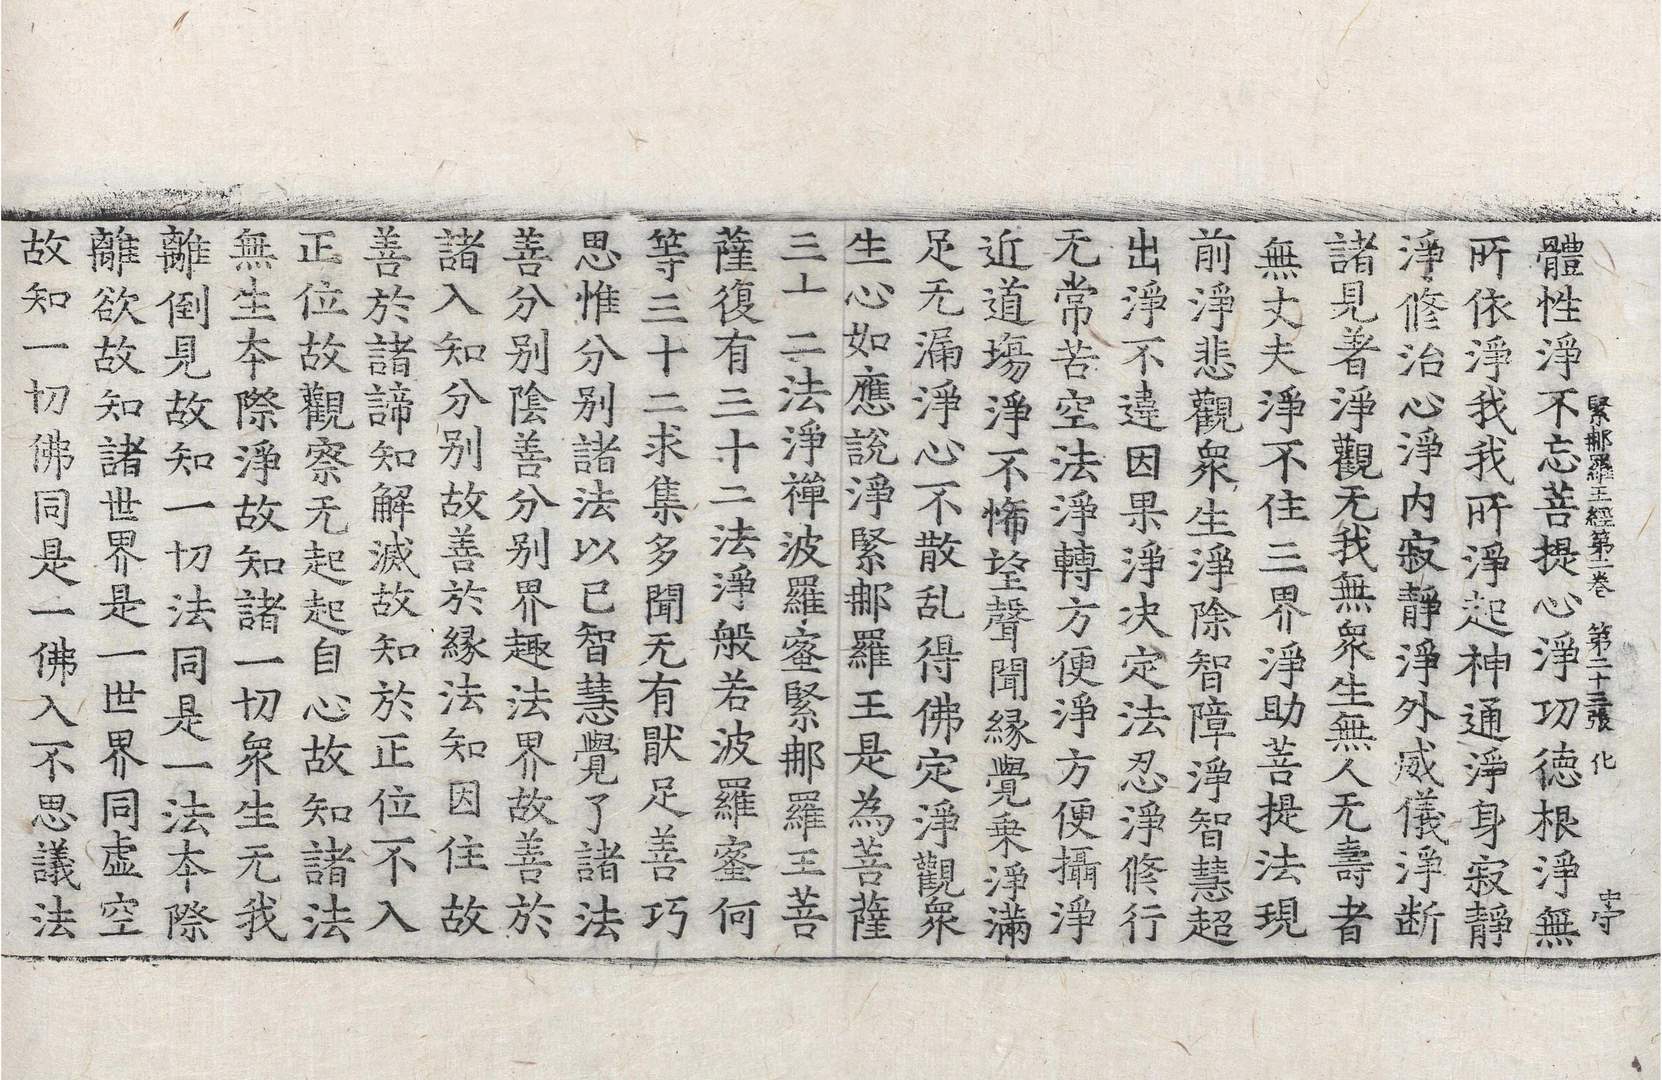 緊那羅王經第二卷 第二十三張 化 中守
體性淨不忘菩提心淨功德根淨無
所依淨我我所淨起神通淨身寂靜
淨修治心淨内寂靜淨外威儀淨断
諸見著淨觀无我無衆生無人无壽者
無丈夫淨不住三界淨助菩提法現
前淨悲觀衆生淨除智障淨智慧超
出淨不違因果淨决定法忍淨修行
无常苦空法淨轉方便淨方便攝淨
近道場淨不悕望聲聞縁覺乗淨滿
足无漏淨心不散乱得佛定淨觀衆
生心如應說淨緊那羅王是為菩薩
三十二法淨禪波羅蜜緊那羅王菩
薩復有三十二法淨般若波羅蜜何
等三十二求集多聞无有猒足善巧
思惟分别諸法以已智慧覺了諸法
善分别陰善分别界趣法界故善於
諸入知分别故善於縁法知因住故
善於諸諦知解滅故知於正位不入
正位故觀察无起起自心故知諸法
無生本際淨故知諸一切衆生无我
離倒見故知一切法同是一法本際
離欲故知諸世界是一世界同虚空
故知一切佛同是一佛入不思議法